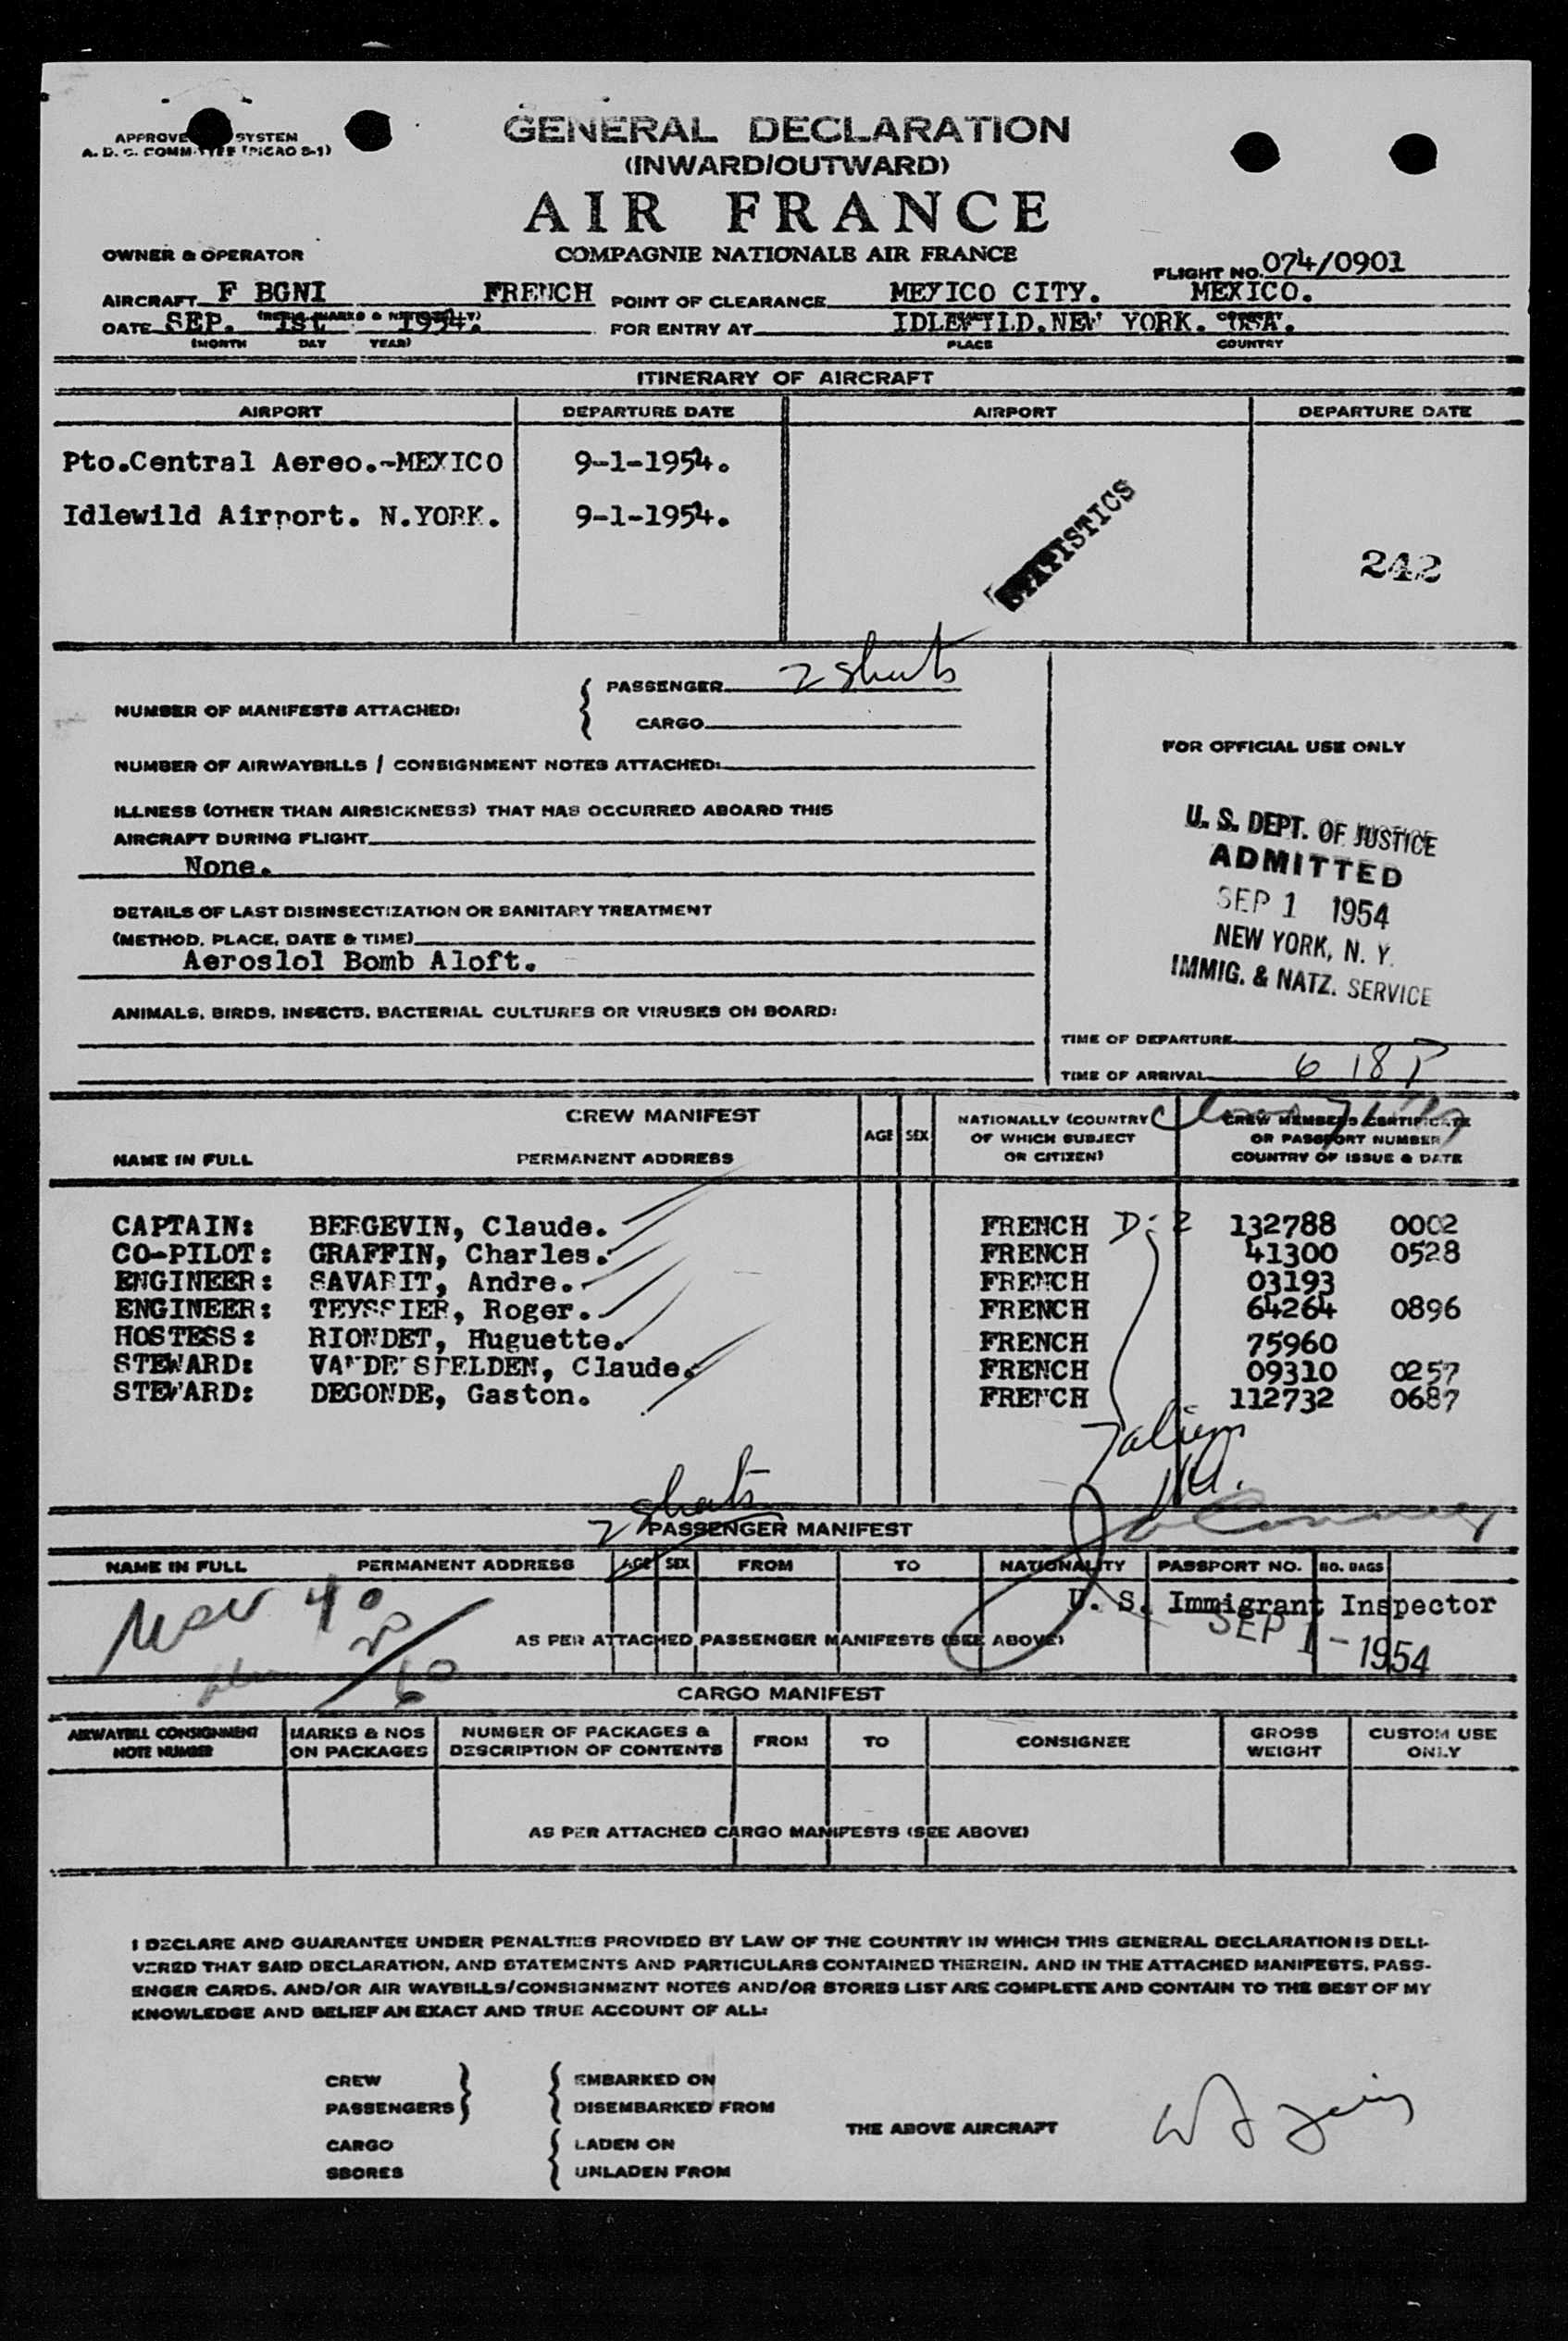 APPROVE SYSTEM
A. D. C. COMMITTEE (PICAO S-1)
GENERAL DECLARATION
(INWARD/OUTWARD)
AIR FRANCE
COMPAGNIE NATIONALE AIR FRANCE
OWNER & OPERATOR
FLIGHT NO. 074/0901
AIRCRAFT F BGNI FRENCH POINT OF CLEARANCE MEXICO CITY. MEXICO.
DATE SEP. 1St. 1954. FOR ENTRY AT IDLEWILD.NEW YORK. USA.
(MONTH DAY YEAR) PLACE COUNTRY
ITINERARY OF AIRCRAFT
AIRPORT DEPARTURE DATE AIRPORT DEPARTURE DATE
Pto.Central Aereo.-MEXICO 9-1-1954.
Idlewild Airport. N.YORK. 9-1-1954.
STATISTICS
242
NUMBER OF MANIFESTS ATTACHED:
PASSENGER 2 sheets
CARGO
FOR OFFICIAL USE ONLY
NUMBER OF AIRWAYBILLS / CONSIGNMENT NOTES ATTACHED:
ILLNESS (OTHER THAN AIRSICKNESS) THAT HAS OCCURRED ABOARD THIS
AIRCRAFT DURING FLIGHT
None.
U. S. DEPT. OF JUSTICE
ADMITTED
SEP 1 1954
NEW YORK, N. Y.
IMMIG. & NATZ. SERVICE
DETAILS OF LAST DISINSECTIZATION OR SANITARY TREATMENT
(METHOD, PLACE, DATE & TIME)
Aeroslol Bomb Aloft.
ANIMALS, BIRDS, INSECTS, BACTERIAL CULTURES OR VIRUSES ON BOARD:
TIME OF DEPARTURE
TIME OF ARRIVAL 6 18 P
CREW MANIFEST
NAME IN FULL PERMANENT ADDRESS AGE SEX
NATIONALLY (COUNTRY
OF WHICH SUBJECT
OR CITIZEN)
CREW MEMBERS CERTIFICATE
OR PASSPORT NUMBER
COUNTRY OF ISSUE & DATE
CAPTAIN: BERGEVIN, Claude. FRENCH D-2 132788 0002
CO-PILOT: GRAFFIN, Charles. FRENCH 41300 0528
ENGINEER: SAVARIT, Andre. FRENCH 03193
ENGINEER: TEYSSIER, Roger. FRENCH 64264 0896
HOSTESS: RIONDET, Huguette. FRENCH 75960
STEWARD: VANDERSTELDEN, Claude. FRENCH 09310 0257
STEWARD: DEGONDE, Gaston. FRENCH 112732 0687
7 aliens
2 sheets
PASSENGER MANIFEST
NAME IN FULL PERMANENT ADDRESS AGE SEX FROM TO NATIONALITY PASSPORT NO. NO. BAGS
U. S. Immigrant Inspector
SEP 1 - 1954
40
20
60
AS PER ATTACHED PASSENGER MANIFESTS (SEE ABOVE)
CARGO MANIFEST
AIRWAYBILL CONSIGNMENT
NOTE NUMBER
MARKS & NOS
ON PACKAGES
NUMBER OF PACKAGES &
DESCRIPTION OF CONTENTS
FROM TO CONSIGNEE
GROSS
WEIGHT
CUSTOM USE
ONLY
AS PER ATTACHED CARGO MANIFESTS (SEE ABOVE)
I DECLARE AND GUARANTEE UNDER PENALTIES PROVIDED BY LAW OF THE COUNTRY IN WHICH THIS GENERAL DECLARATION IS DELI-
VERED THAT SAID DECLARATION, AND STATEMENTS AND PARTICULARS CONTAINED THEREIN, AND IN THE ATTACHED MANIFESTS, PASS-
ENGER CARDS, AND/OR AIR WAYBILLS/CONSIGNMENT NOTES AND/OR STORES LIST ARE COMPLETE AND CONTAIN TO THE BEST OF MY
KNOWLEDGE AND BELIEF AN EXACT AND TRUE ACCOUNT OF ALL:
CREW EMBARKED ON
PASSENGERS DISEMBARKED FROM
THE ABOVE AIRCRAFT
CARGO LADEN ON
SBORES UNLADEN FROM